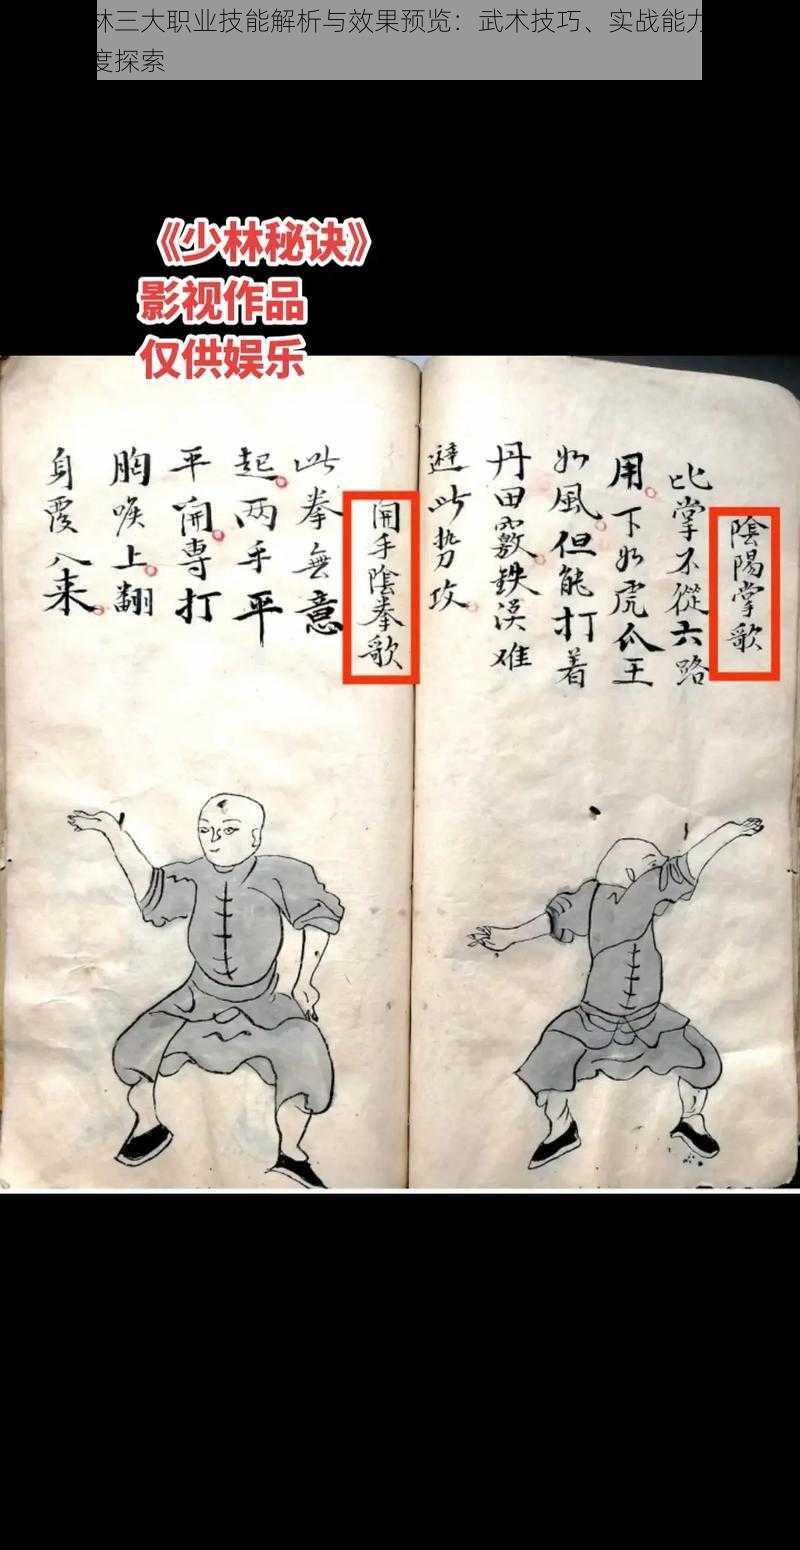 林三大职业技能解析与效果预览：武术技巧、实战能力
度探索
《少林秘诀》
影视作品
仅供娱乐
陰陽掌歌
此掌不從六路
用下如虎爪王
如風但能打着
丹田竅鉄漢难
避此势攻
開手陰拳歌
此拳無意
起两手平
平開專打
胸喉上翻
身覆八来